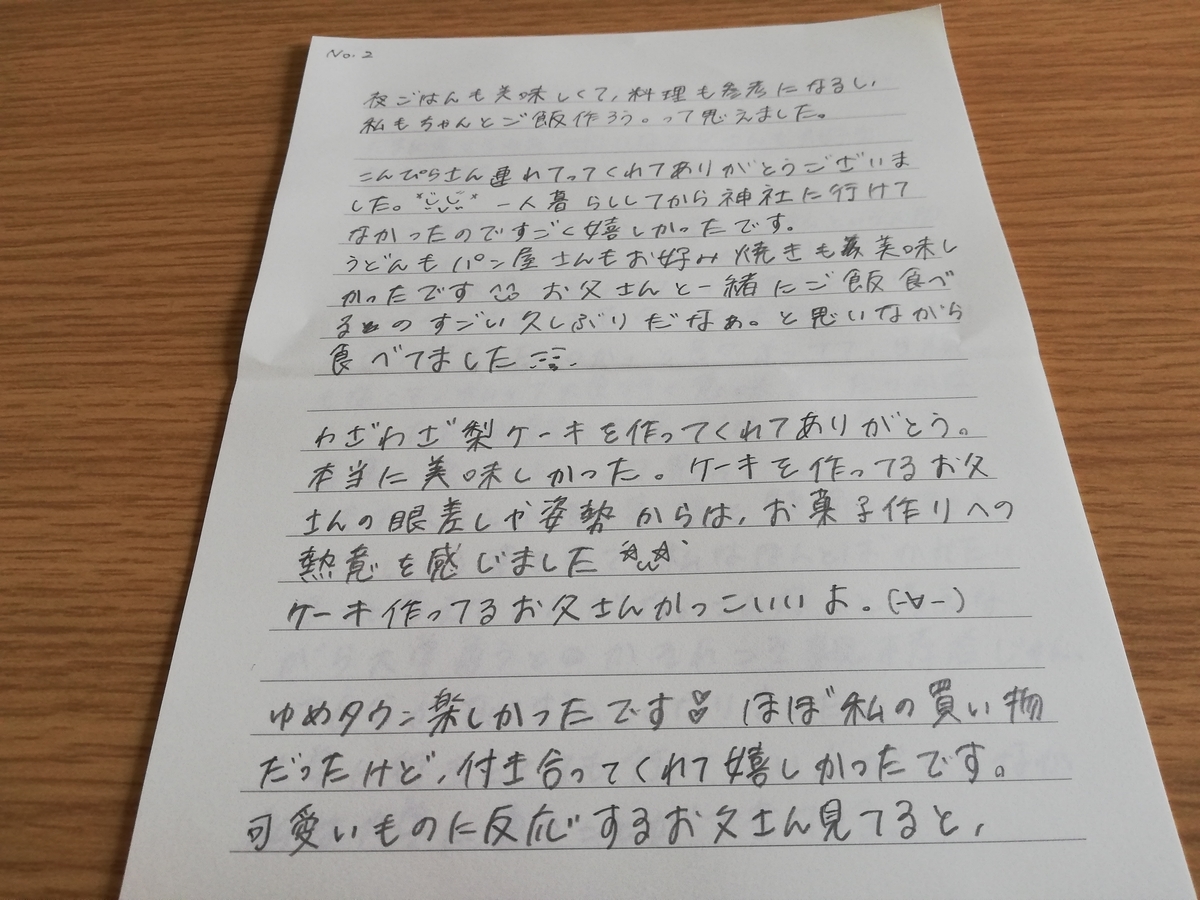 No.2
夜ごはんも美味しくて、料理も参考になるし、
私もちゃんとご飯作ろう。って思えました。
こんぴらさん連れてってくれてありがとうございま
した。 一人暮らししてから神社に行けて
なかったのですごく嬉しかったです。
うどんもパン屋さんもお好み焼きも美味し
かったです お父さんと一緒にご飯食べ
るのすごい久しぶりだなぁ。と思いながら
食べてました
わざわざ梨ケーキを作ってくれてありがとう。
本当に美味しかった。ケーキを作ってるお父
さんの眼差しや姿勢からは、お菓子作りへの
熱意を感じました
ケーキ作ってるお父さんかっこいいよ。(-∀-)
ゆめタウン楽しかったです♡ ほぼ私の買い物
だったけど、付き合ってくれて嬉しかったです。
可愛いものに反応するお父さん見てると、